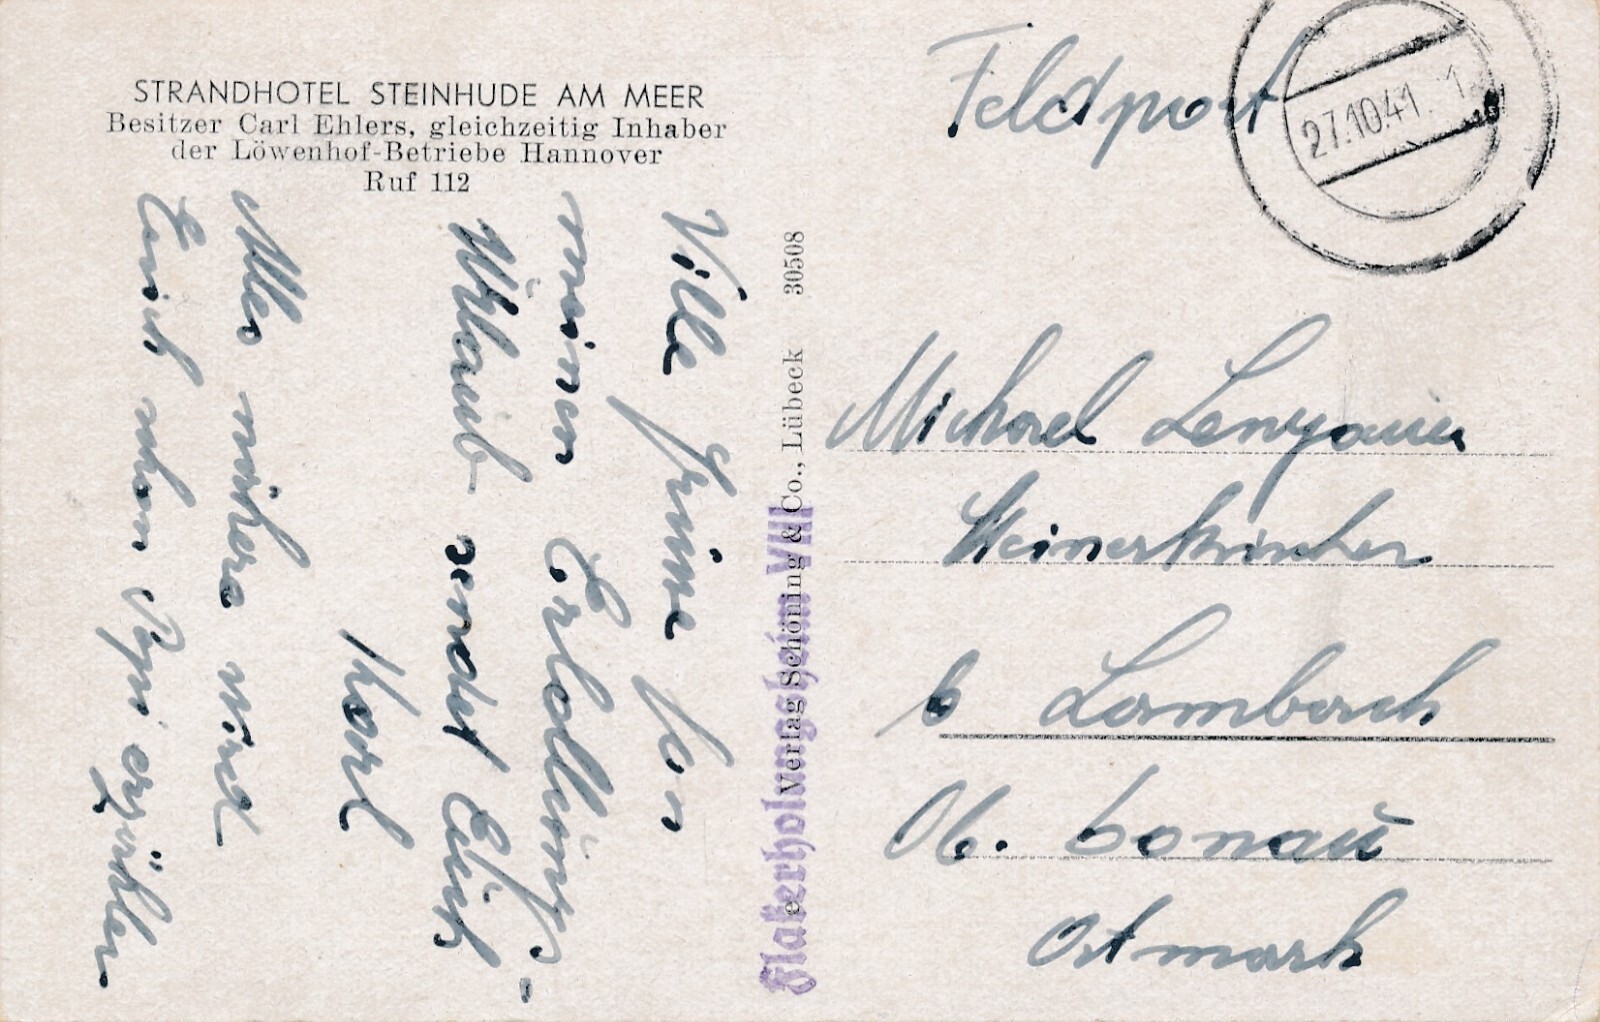 STRANDHOTEL STEINHUDE AM MEER
Besitzer Carl Ehlers, gleichzeitig Inhaber
der Löwenhof-Betriebe Hannover
Ruf 112
Viele Grüße von
meinen Erholungs-
Uhrlaub sendet Euch
Karl
Alles nähere wird
Euch schon erzählen
Verlag Schöning & Co., Lübeck 30508
Flakerholungsheim VIII
Feldpost
27.10.41
Michael
b Lambach
Ob. Donau
Ostmark